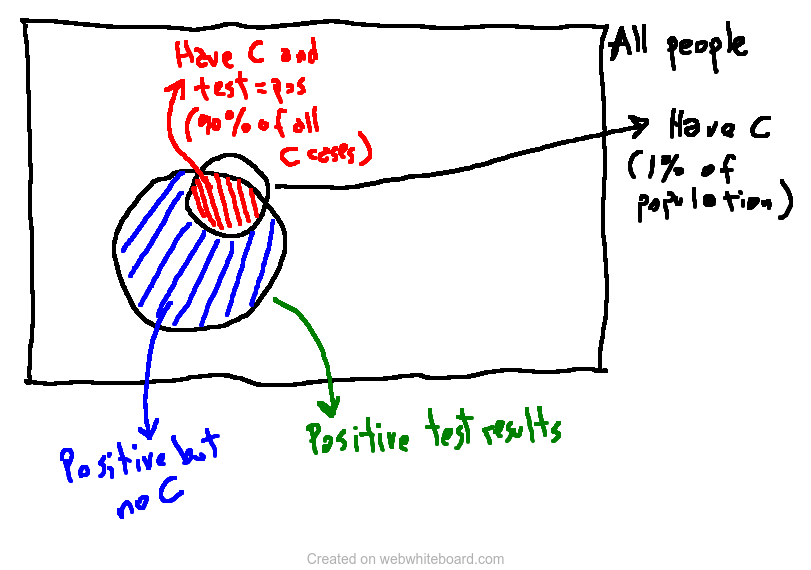 Have C and
test=pos
(90% of all
C cases)
All people
Have C
(1% of
population)
Positive but
no C
Positive test results
Created on webwhiteboard.com